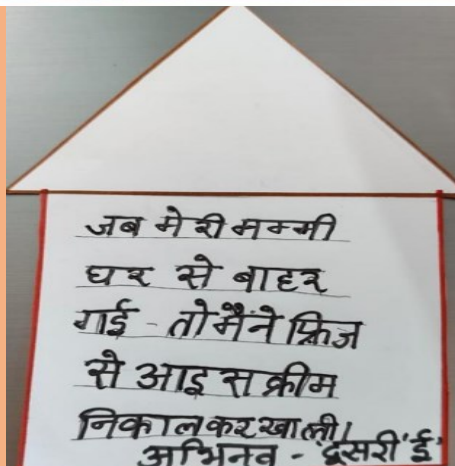 जब मेरी मम्मी
घर से बाहर
गई - तो मैंने फ्रिज
से आइसक्रीम
निकाल कर खा ली।
अभिनव - 'दूसरी 'ई'